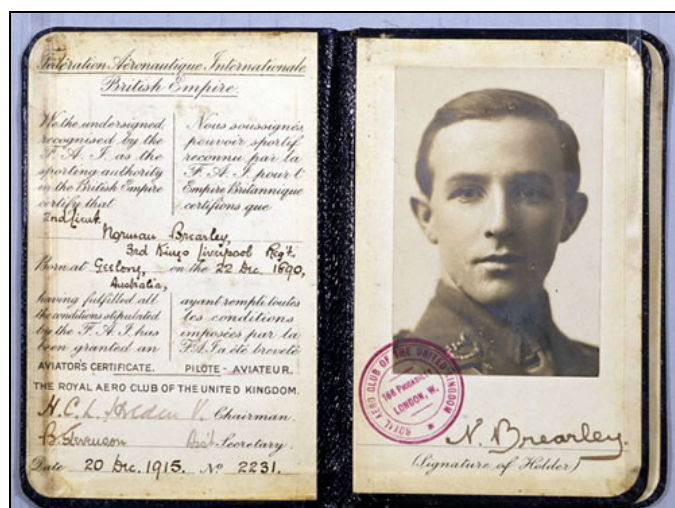 Fédération Aéronautique Internationale
British Empire.
We the undersigned
recognised by the
F. A. I. as the
sporting authority
in the British Empire
certify that
Nous soussignés
pouvoir sportif
reconnu par la
F. A. I. pour l'
Empire Britannique
certifions que
2nd Lieut.
Norman Brearley,
3rd Kings Liverpool Regt.
Born at Geelong, on the 22 Dec. 1890,
Australia,
having fulfilled all
the conditions stipulated
by the F. A. I. has
been granted an
AVIATOR'S CERTIFICATE.
ayant rempli toutes
les conditions
imposées par la
F.A.I. a été breveté
PILOTE - AVIATEUR.
THE ROYAL AERO CLUB OF THE UNITED KINGDOM.
H. C. L. Holden V. Chairman.
B. Stevenson Asst Secretary.
Date 20 Dec. 1915. No 2231.
ROYAL AERO CLUB OF THE UNITED KINGDOM
166 PICCADILLY
LONDON, W.
N. Brearley.
(Signature of Holder)